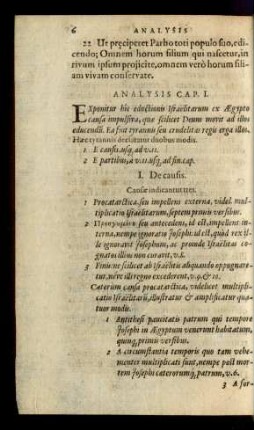 6 ANALYSIS
22 Ut preciperet Parho toti populo suo, edi-
cendo; Omnem horum filium qui nascetur, in
rivum ipsum projicite, omnem verò horum fili-
am vivam conservate.
ANALYSIS CAP. I.
Exponitur hîc eductionis Israëlitarum ex Ægypto
causa impulsiva, quæ scilicet Deum movit ad illos
educendū. Ea fuit tyrannis seu crudelitas regū erga illos.
Hæc tyrannis declaratur duobus modis.
1 E causis usq; ad v. 11.
2 E partibus, a v. 11. usq; ad fin. cap.
I. De causis.
Causæ indicantur tres.
1 Procatarctica, seu impellens externa, videl. mul-
tiplicatio Israëlitarum, septem primis versibus.
2 seu antecedens, id est, impellens in-
terna, nempe ignoratio Josephi: id est, quòd rex il-
le ignorarit Josephum, ac proinde Israëlitas co-
gnatos illius non curarit, v. 8.
3 Finis: ne scilicet ab Israëlitis aliquando oppugnare-
tur, néve illi è regno excederent, v. 9, & 10.
Cæterùm causa procatarctica, videlicet multipli-
catio Israëlitarū, illustratur & amplificatur qua-
tuor modis.
1 Antithesi paucitatis patrum qui tempore
Josephi in Ægyptum venerunt habitatum,
quinq; primis versibus.
2 A circumstantia temporis quo tam vehe-
menter multiplicati sunt, nempe post mor-
tem Josephi cæterorumq; patrum, v. 6.
3 A for-